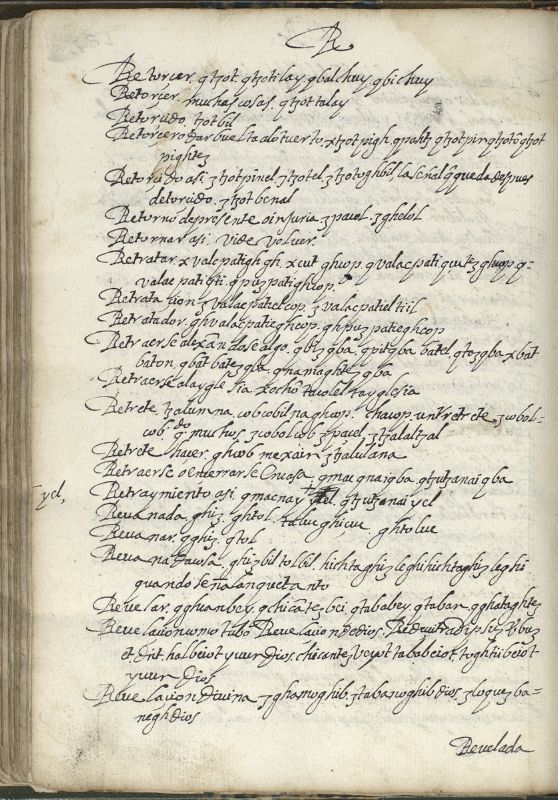 R
Retorçer. qtzot. qtzotilay. qbalchuy qbichuy
Retorçer. muchas cosas. qtzot talay
Retorcido tzotbil
Retorcer o dar buelta alo tuerto. xtzot pigh. qpaltz qtzot pir. qtzotô qtzot
pightez
Retorçido asi. ztzotpinel. ztzotel. ztzotoghbil. la señal q̃ queda despues
detorcido. ztzotbenal
Retorno de presente o injuria. zpacel. zghelol
Retornar asi. vide volver.
Retratar. xvalcpatigh gh. xcut ghcop. qvalacpati qutez ghcop q-
valac patigti. qpuz pati ghcop.
Retratation. zvalacpatiel cop. zvalacpatiel tiil
Retratador. ghvalacpatieghcop. ghpuzpatieghcop
Retraerse dexandose algo. qbtz qba. qpitz qba batel. qtoz qba xbat
baton. qbat batez qba. qnamaghtez qba
Retraerse ala yglesia. xochô tacolel ta yglesia
Retrete. tzalumna. cobcobil na ghcop. chacop. un retrete. zcobol-
cob. de muchos. zcobolcob. zpacel. ztzalaltzal
Retrete hacer. ghcob mexain. tzalulana
Retraerse o enterrarse en casa. qmacqnaiqba. qtzutzanai qba
Retraymiento asi. qmacnay tel. qtzutzanai yel
yel,
Revanada. ghiz. ghtol. ta bughicuc. ghtolve
Revanar. qghiz. qtol
Revanada cosa. ghizbil tolbil. hichtaghiz leghi hichtaghiz leghi
quando señalan que tanto
Revelar. qghvanbey. qchicâtez bei. qtababey. qtabar. qghataghtez
Revelacion como tubo Revelacion de dios.
et dit. halbeiot yuun Dios. chicantezbeyot tababeiot. toghtiibeiot
yuun dios
Revelacion Divina. zghamoghib. ztabanoghib dios. zloquez ba-
negh dios
Revelada